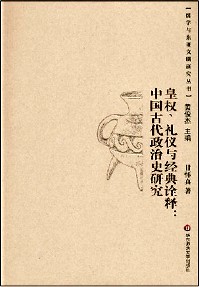 【儒学与东亚文明研究丛书】
黄俊杰 主编
皇权、礼仪与经典诠释：
中国古代政治史研究
甘怀真 著
华东师范大学出版社